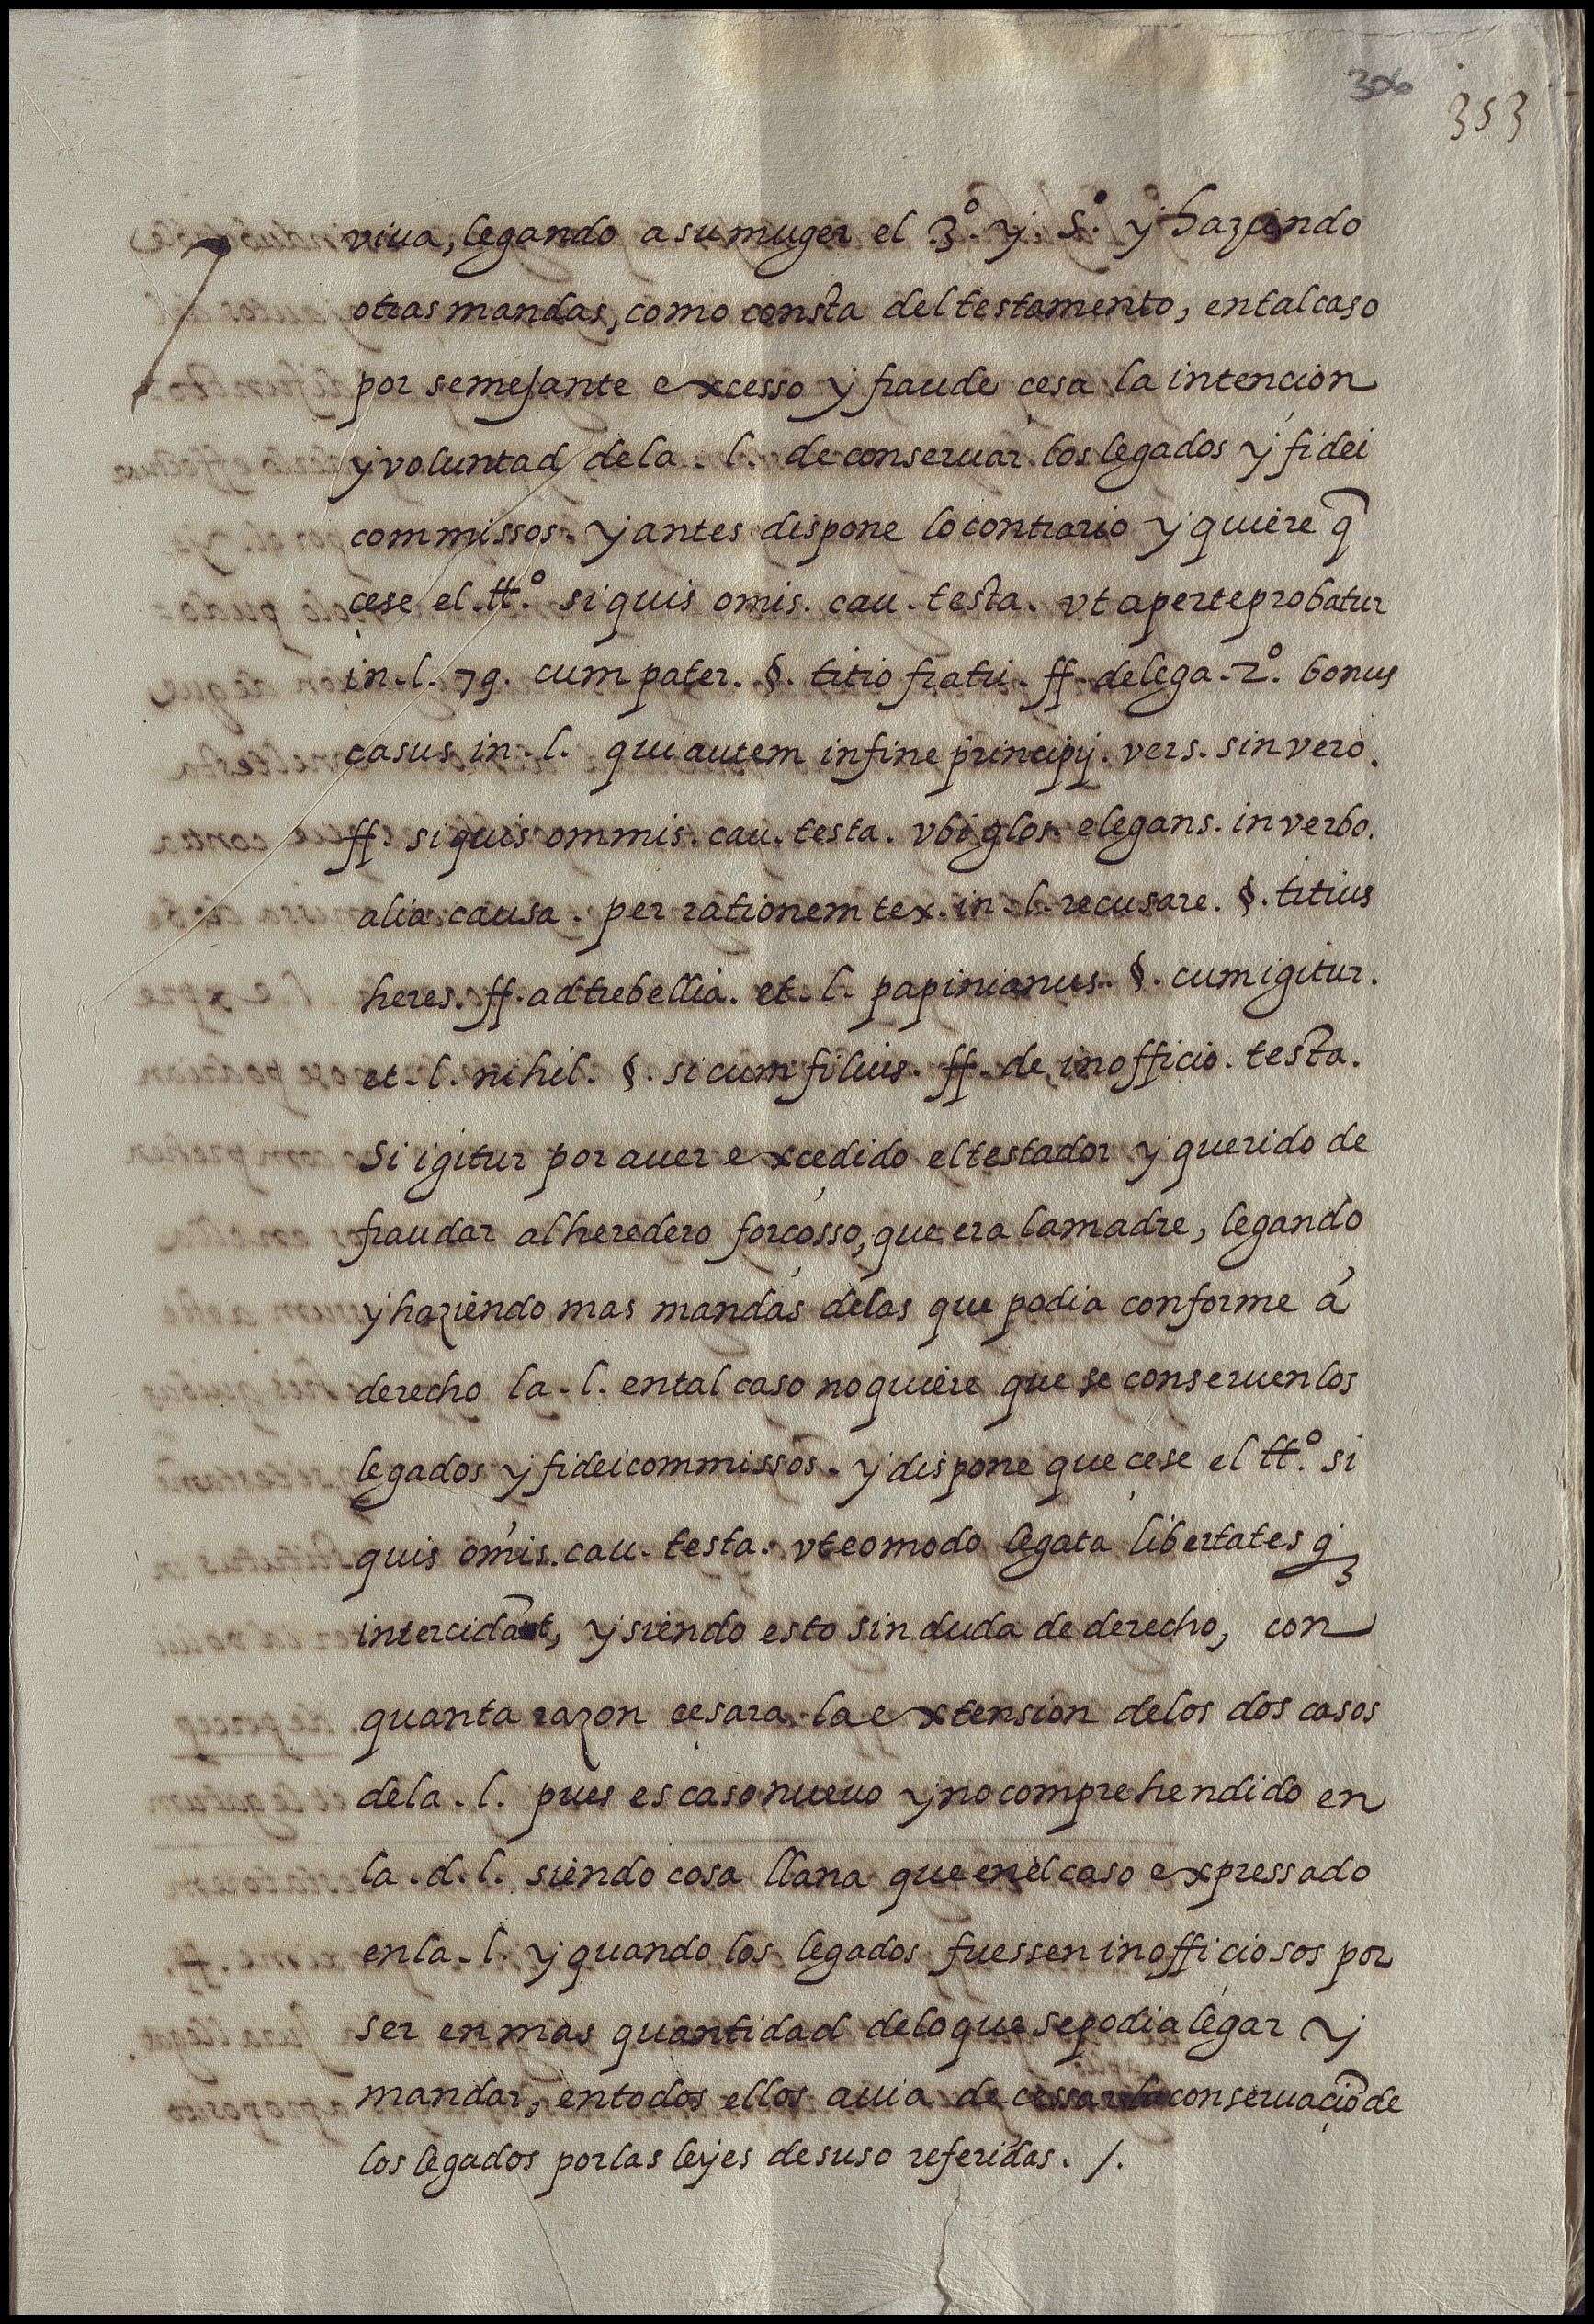 353
viua, legando a su muger el 3º. y. 5º. y haziendo
otras mandas, como consta del testamento, en tal caso
por semejante excesso y fraude cesa la intencion
y voluntad de la . l. de conseruar los legados y fidei
commissos. y antes dispone lo contrario y quiere q̃
cese el tt.º si quis omis. cau. testa. vt aperte probatur
in. l. 79. cum pater. §. titio fratri. ff. de lega. 2º. bonus
casus in. l. qui autem in fine principij. vers. sin vero.
ff. si quis ommis. cau. testa. vbi glos. elegans. in verbo.
alia causa. per rationem tex. in. l. recusare. §. titius
heres. ff. ad trebellia. et. l. papinianus. §. cum igitur.
et. l. nihil. §. si cum filius. ff. de inofficio. testa.
Si igitur por auer excedido el testador y querido de
fraudar al heredero forçosso, que era la madre, legando
y haziendo mas mandas de las que podia conforme á
derecho la. l. en tal caso no quiere que se conseruen los
legados y fideicommissos. y dispone que cese el tt.º si
quis omis. cau. testa. vt eo modo legata libertates q3
intercidant, y siendo esto sin duda de derecho, con
quanta razon cesara la extension de los dos casos
de la. l. pues es caso nueuo y no comprehendido en
la. d. l. siendo cosa llana que en el caso expressado
en la. l. y quando los legados fuessen inofficiosos por
ser en mas quantidad de lo que se podia legar y
mandar, en todos ellos auia de cessar la conseruaçiõ de
los legados por las leyes de suso referidas. /.